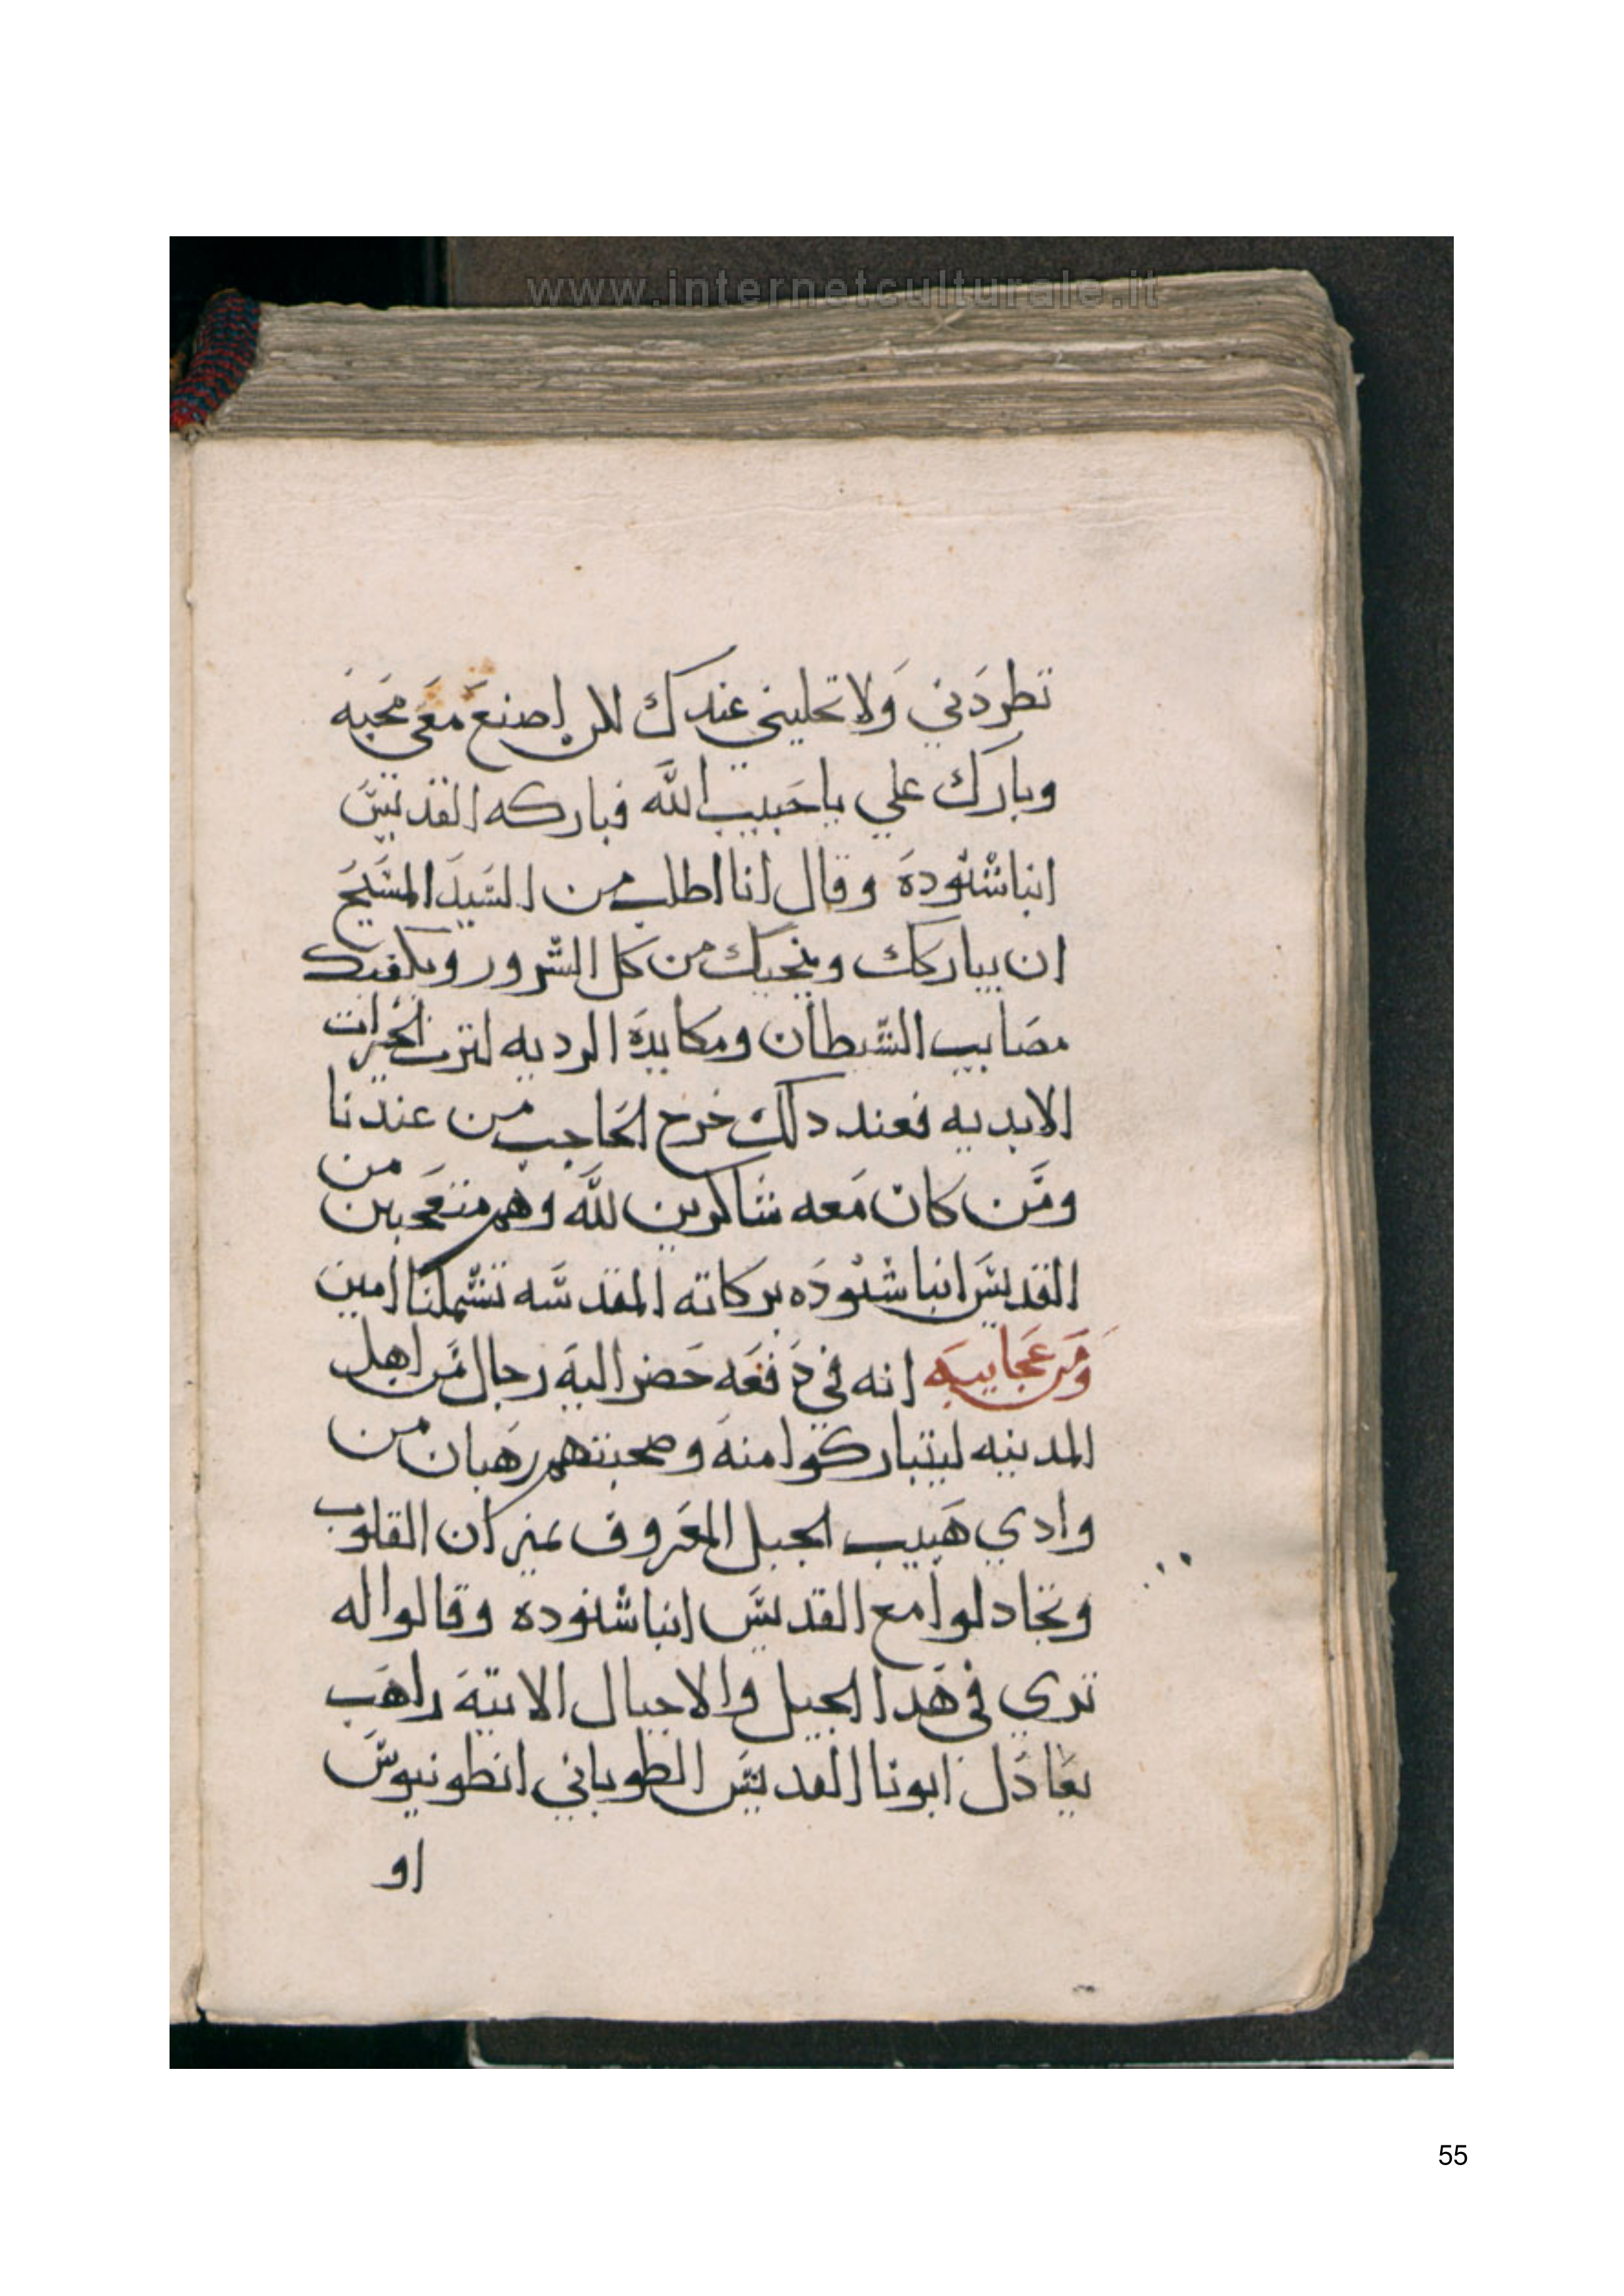 www.internetculturale.it
تطردني ولا تخليني عندك لكن اصنع معي محبه
وبارك علي ياحبيب الله فباركه القديس
انبا شنوده وقال انا اطلب من السيد المسيح
ان يباركك وينجيك من كل الشرور ويكفيك
مصايب الشيطان ومكايده الرديه لترث الخيرات
الابديه فعند دلك خرج الحاجب من عندنا
ومن كان معه شاكرين لله وهم متعجبين من
القديس انبا شنوده بركاته المقدسه تشملنا امين
ومن عجايبه انه في دفعه حضر اليه رجال من اهل
المدينه ليتباركوا منه وصحبتهم رهبان من
وادي هبيب الجبل المعروف بميزان القلوب
وتجادلوا مع القديس انبا شنوده وقالوا له
تري في هدا الجيل والاجيال الاتيه راهب
يعادل ابونا القديس الطوباني انطونيوس
او
55